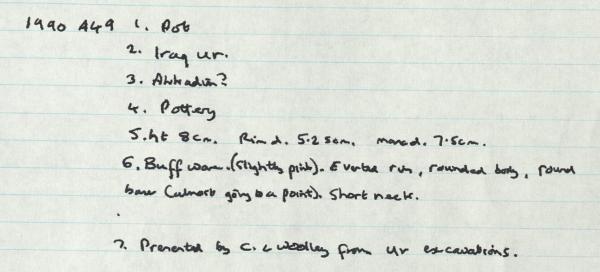 1990 A49 1. Pot
2. Iraq Ur.
3. Akkadian?
4. Pottery
5. ht 8cm. Rim d. 5.25cm. max d. 7.5cm.
6. Buff ware. (slightly pink). Everted rim, rounded body, round
base (almost going to a point). Short neck.
7. Presented by C. L Woolley from Ur excavations.